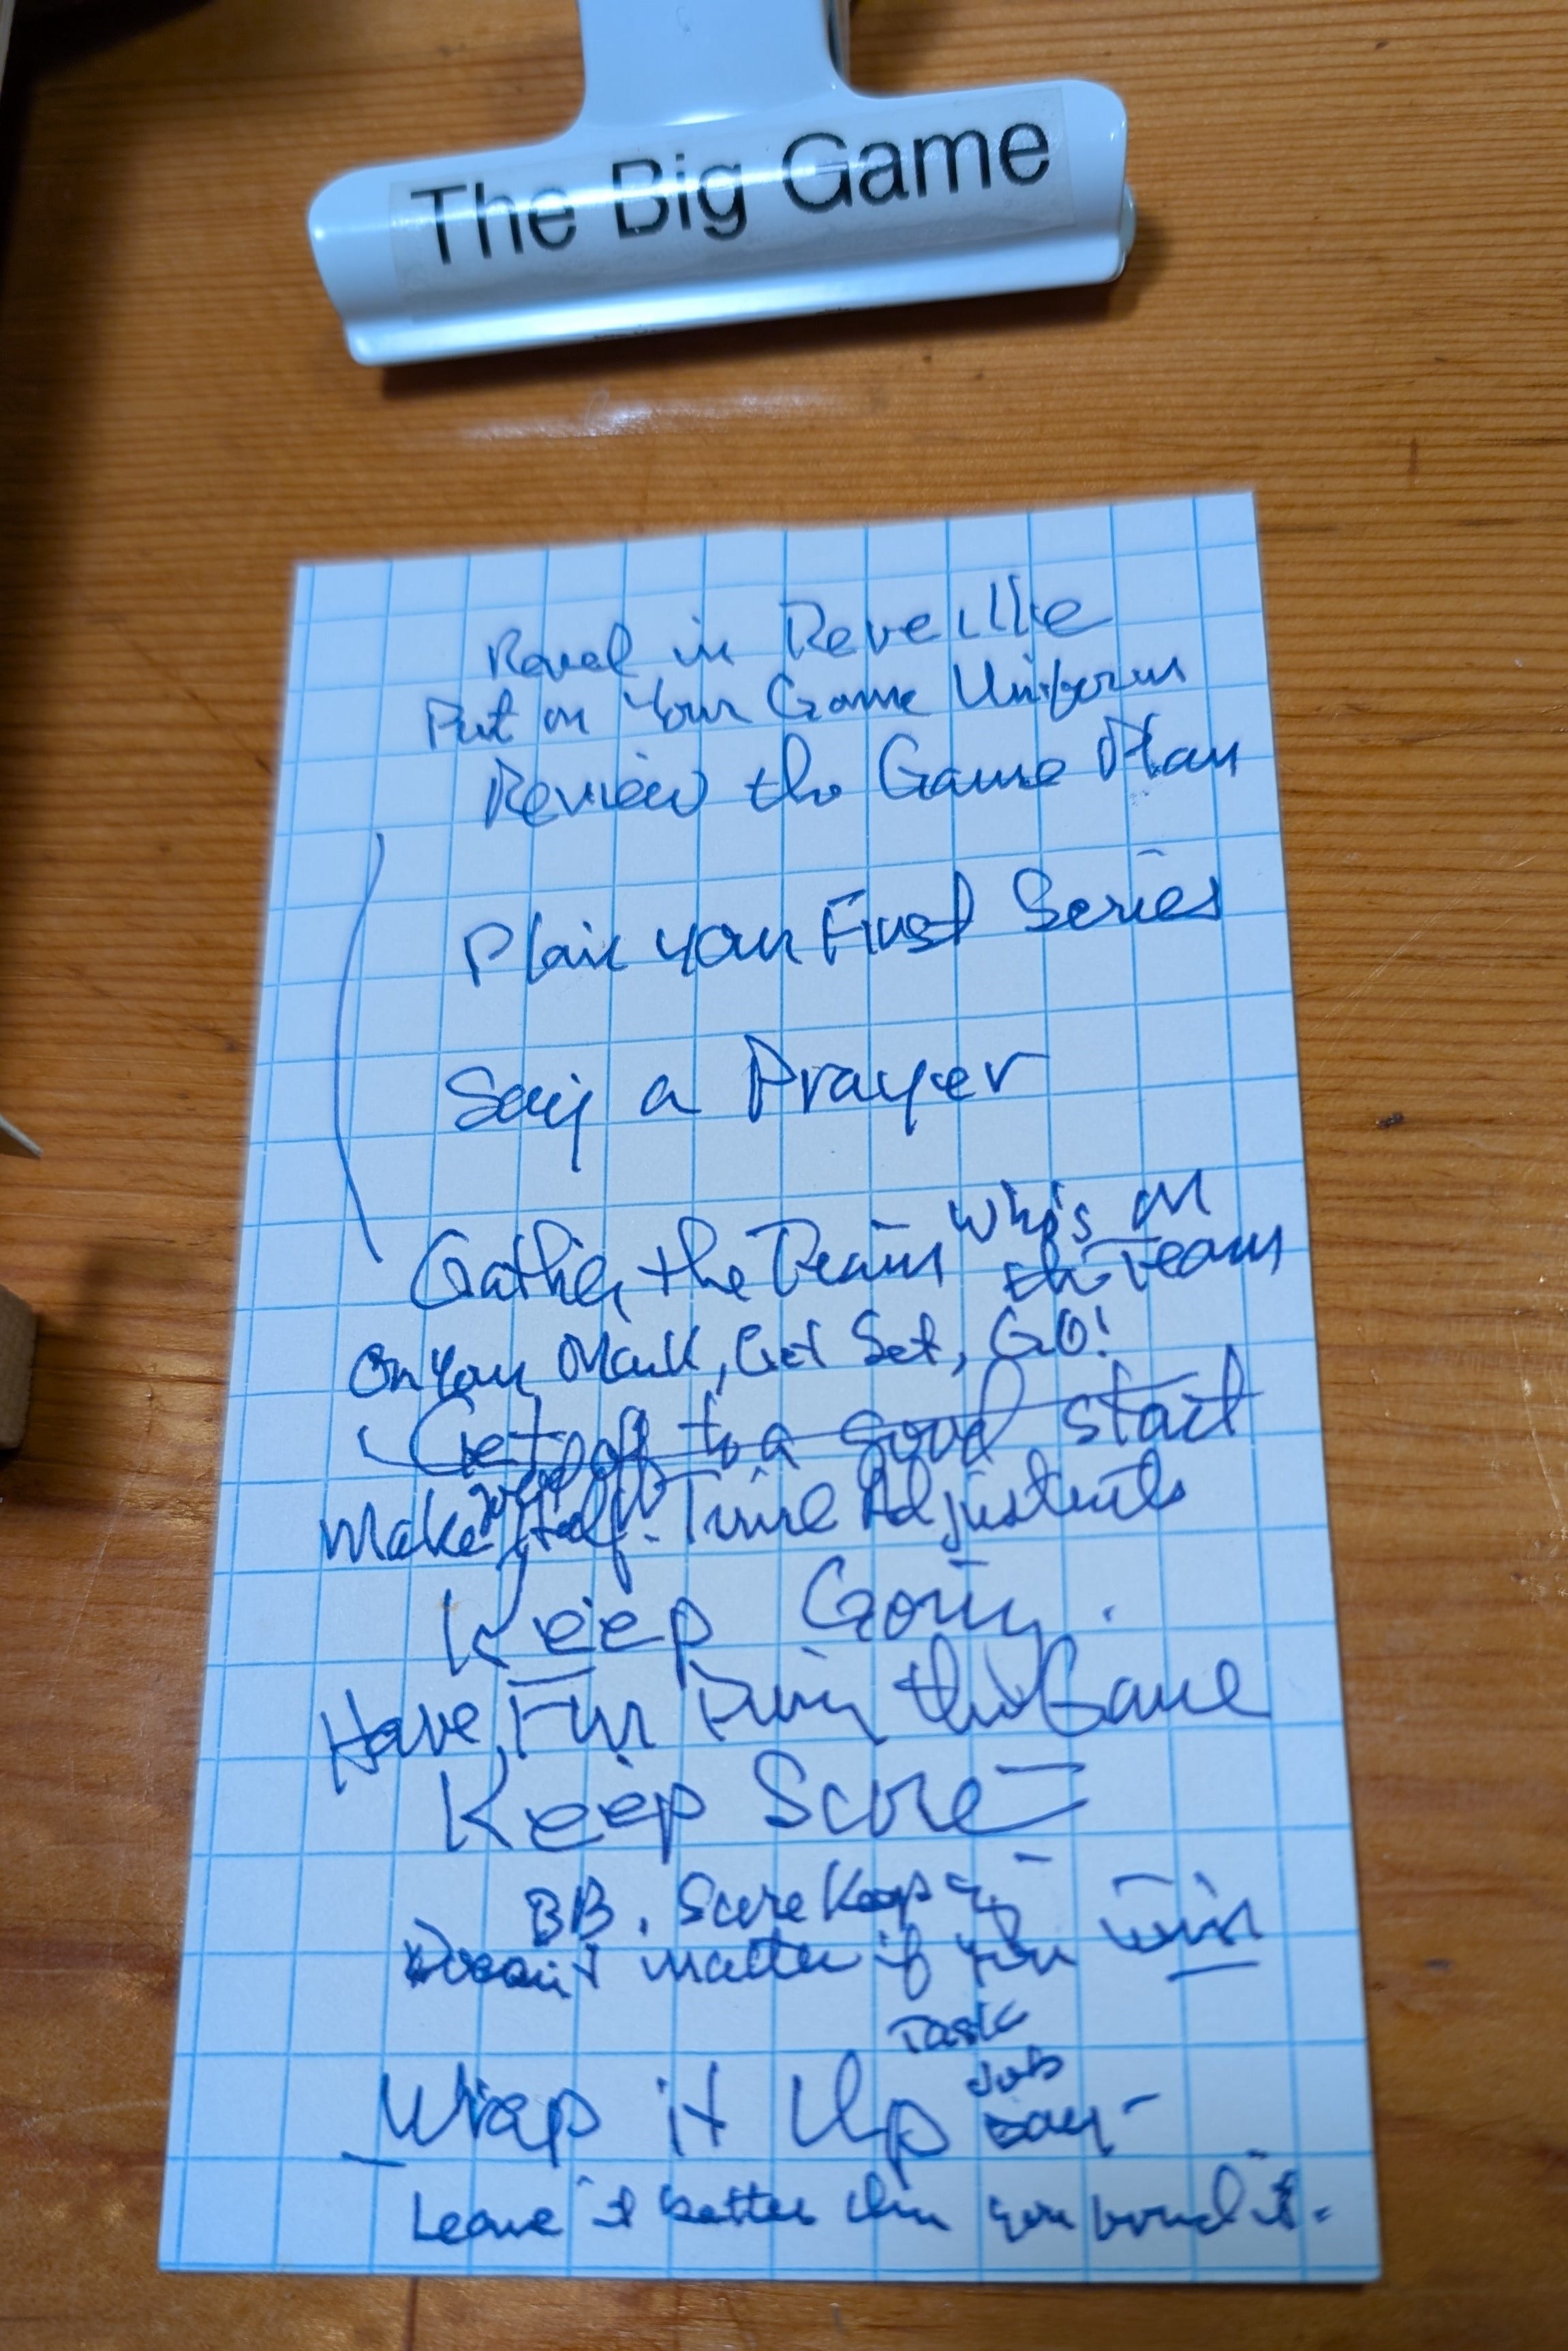 The Big Game
Revel in Reveille
Put on Your Game Uniform
Review the Game Plan
Plan your First Series
Say a Prayer
Gather the Team Who's on
the Team
On Your Mark, Get Set, GO!
Get off to a good start
Make Half-Time Adjustments
Keep Going.
Have Fun During the Game
Keep Score
BB. Score Keeping
Doesn't matter if you win
Task
Job
Wrap it Up Day
Leave it better than you found it.